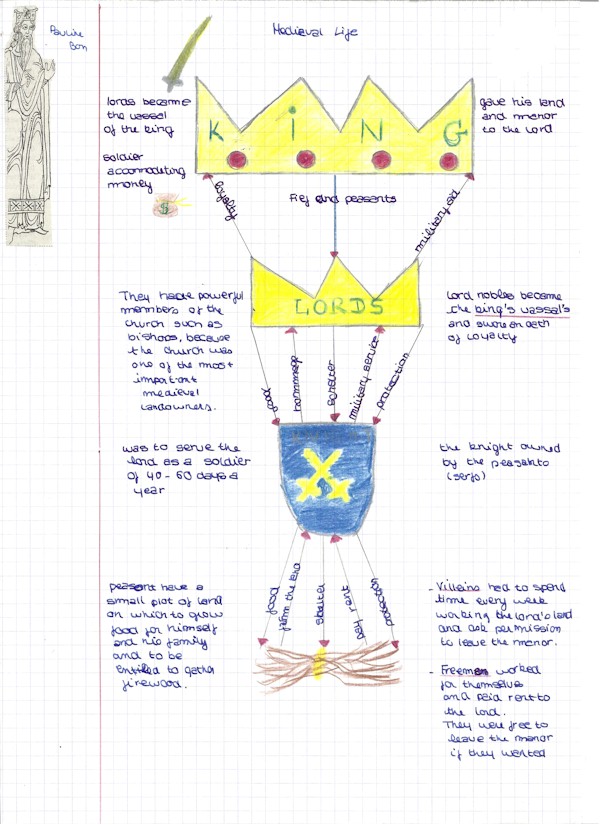 Pauline
Bon
Medieval Life
lords became
the vassal
of the king
soldier
accomodating
money
$
gave his land
and manor
to the lord
KiNG
loyalty
Fiefs and peasants
military aid
LORDS
They have powerful
members of the
church such as
bishops, because
the church was
one of the most
important
medieval
landowners.
Lord nobles became
the king's vassal's
and swore an oath
of loyalty
food
hommage
shelter
military service
protection
was to serve the
lord as a soldier
of 40-60 days a
year
the knight owned
by the peasants
(serfs)
food
farm the land
shelter
pay rent
protection
peasant have a
small plot of land
on which to grow
food for himself
and his family
and to be
entitled to gather
firewood.
- Villains had to spend
time every week
working the lord's land
and ask permission
to leave the manor.
- Freemen worked
for themselves
and paid rent to
the lord.
They were free to
leave the manor
if they wanted